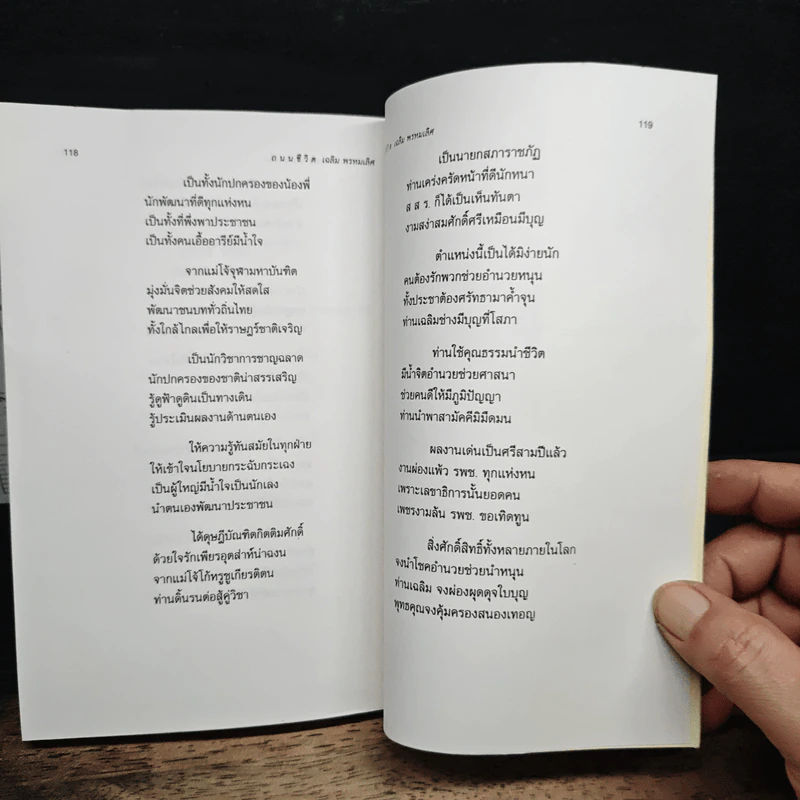 118
ถนนชีวิต เฉลิม พรหมเลิศ
เป็นทั้งนักปกครองของน้องพี่
นักพัฒนาที่ดีทุกแห่งหน
เป็นทั้งที่พึ่งพาประชาชน
เป็นทั้งคนเอื้ออารีย์มีน้ำใจ
จากแม่โจ้จุฬามหาบันฑิต
มุ่งมั่นจิตช่วยสังคมให้สดใส
พัฒนาชนบททั่วถิ่นไทย
ทั้งใกล้ไกลเพื่อให้ราษฎร์ชาติเจริญ
เป็นนักวิชาการชาญฉลาด
นักปกครองของชาติน่าสรรเสริญ
รู้ดูฟ้าดูดินเป็นทางเดิน
รู้ประเมินผลงานด้านตนเอง
ให้ความรู้ทันสมัยในทุกฝ่าย
ให้เข้าใจนโยบายกระฉับกระเฉง
เป็นผู้ใหญ่มีน้ำใจเป็นนักเลง
นำตนเองพัฒนาประชาชน
ได้ดุษฎีบัณฑิตกิตติมศักดิ์
ด้วยใจรักเพียรอุตส่าห์น่าฉงน
จากแม่โจ้โก้หรูชูเกียรติตน
ท่านดิ้นรนต่อสู้คู่วิชา
119
เฉลิม พรหมเลิศ
เป็นนายกสภาราชภัฏ
ท่านเคร่งครัดหน้าที่ดีนักหนา
ส ส ร. ก็ได้เป็นเห็นทันตา
งามสง่าสมศักดิ์ศรีเหมือนมีบุญ
ตำแหน่งนี้เป็นได้มิง่ายนัก
คนต้องรักพวกช่วยอำนวยหนุน
ทั้งประชาต้องศรัทธามาค้ำจุน
ท่านเฉลิมช่างมีบุญที่โสภา
ท่านใช้คุณธรรมนำชีวิต
มีน้ำจิตอำนวยช่วยศาสนา
ช่วยคนดีให้มีภูมิปัญญา
ท่านนำพาสามัคคีมิมืดมน
ผลงานเด่นเป็นศรีสามปีแล้ว
งานผ่องแพ้ว รพช. ทุกแห่งหน
เพราะเลขาธิการนั้นยอดคน
เพชรงามล้น รพช. ขอเทิดทูน
สิ่งศักดิ์สิทธิ์ทั้งหลายภายในโลก
จงนำโชคอำนวยช่วยนำหนุน
ท่านเฉลิม จงผ่องผุดดุจใบบุญ
พุทธคุณจงคุ้มครองสนองเทอญ